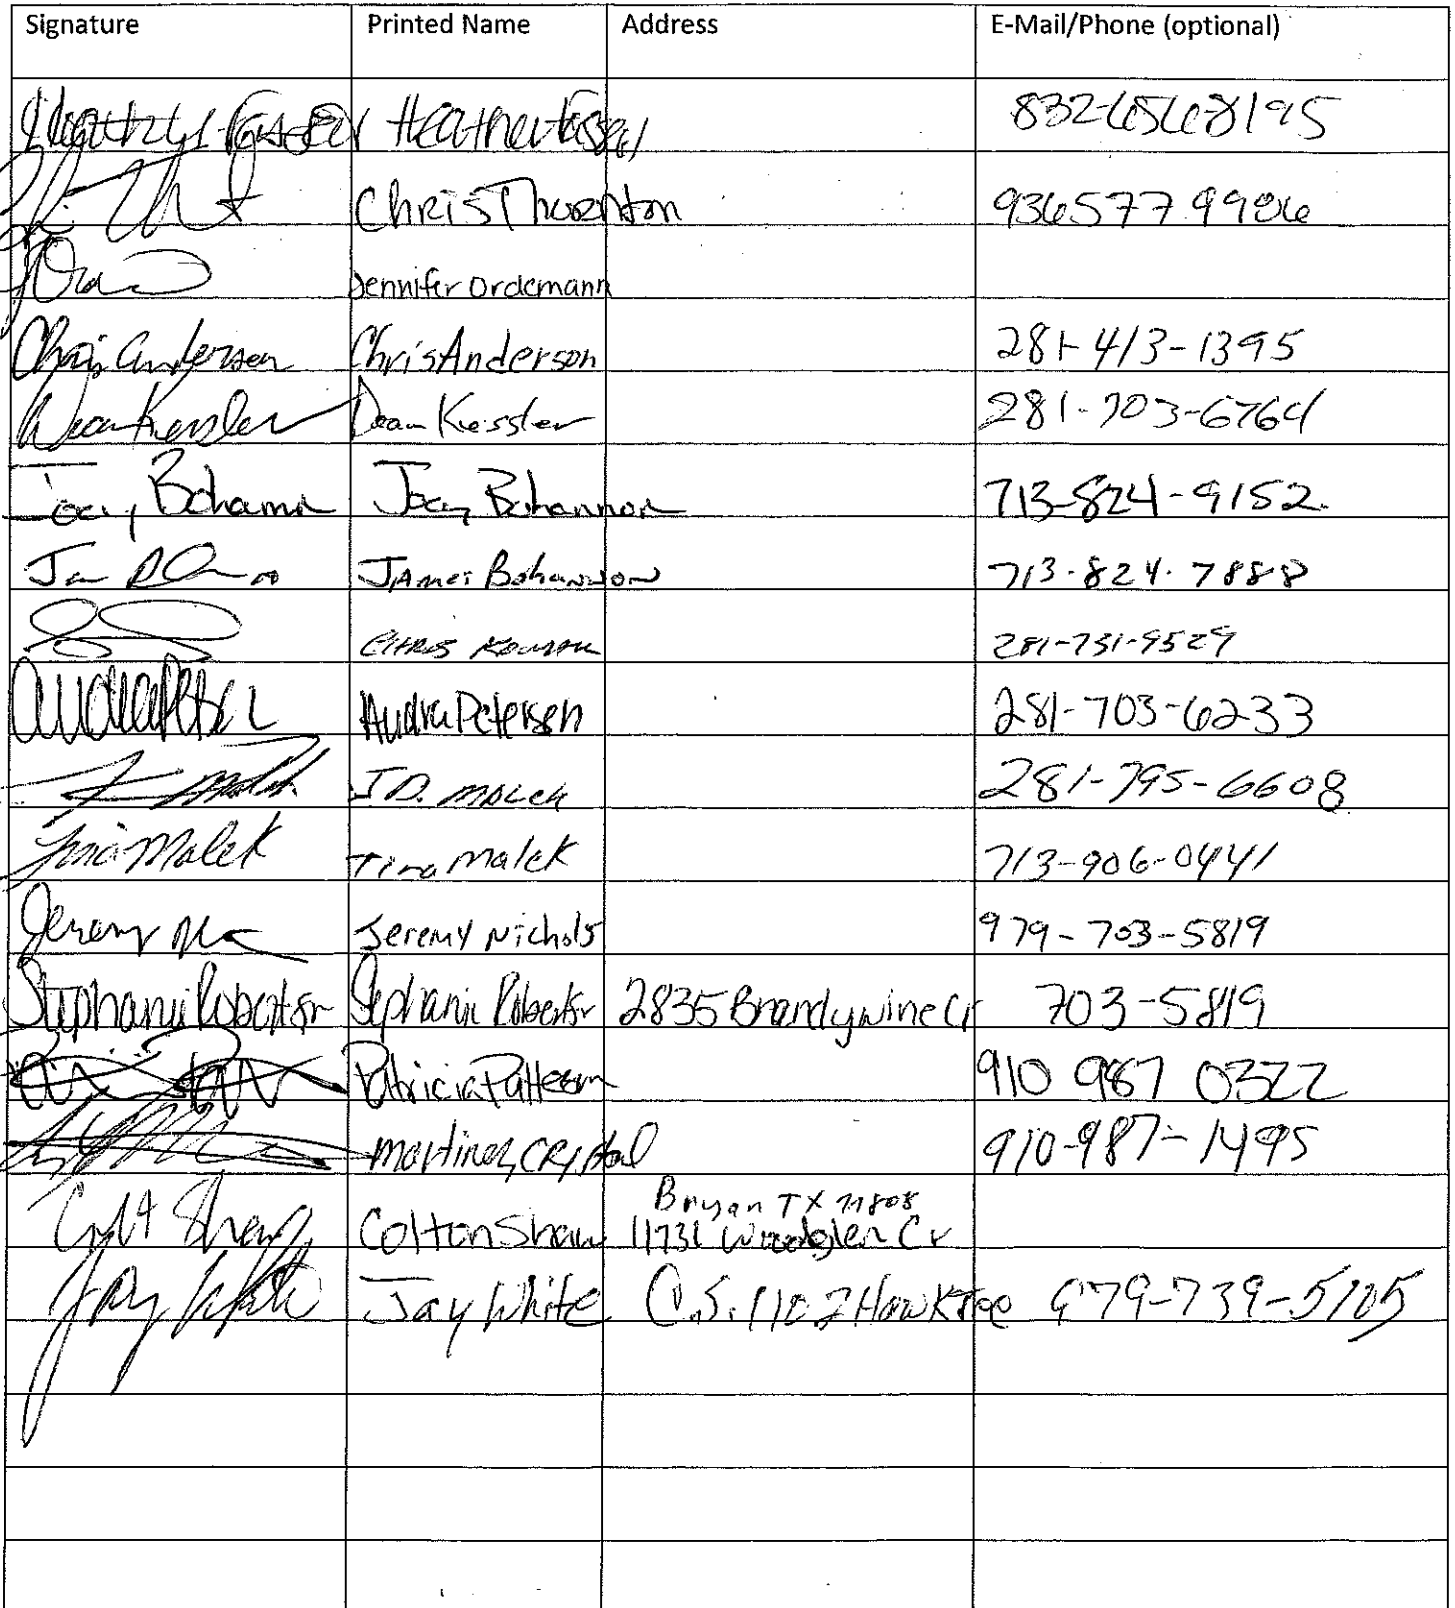 Signature Printed Name Address E-Mail/Phone (optional)
Heather 832-656-8195
Chris Thornton 936 577 9906
Jennifer Ordemann
Chris Anderson Chris Anderson 281-413-1395
Dean Kessler Dean Kessler 281-703-6764
Joey Bohannon Joey Bohannon 713-824-9152
James Bohannon 713-824-7888
Chris 281-731-9529
Audra Petersen 281-703-6233
J.D. Malek 281-795-6608
Tina Malek Tina Malek 713-906-0441
Jeremy Jeremy Nichols 979-703-5819
Stephanie Robertson Stephanie Robertson 2835 Brandywine Cr 703-5819
Patricia Patterson 910 987 0322
Martinez, Crystal 910-987-1495
Bryan TX
Colt Shaw Colton Shaw 11731 Woodglen Cr
Jay White Jay White C.S. 1102 Hawktree 979-739-5105